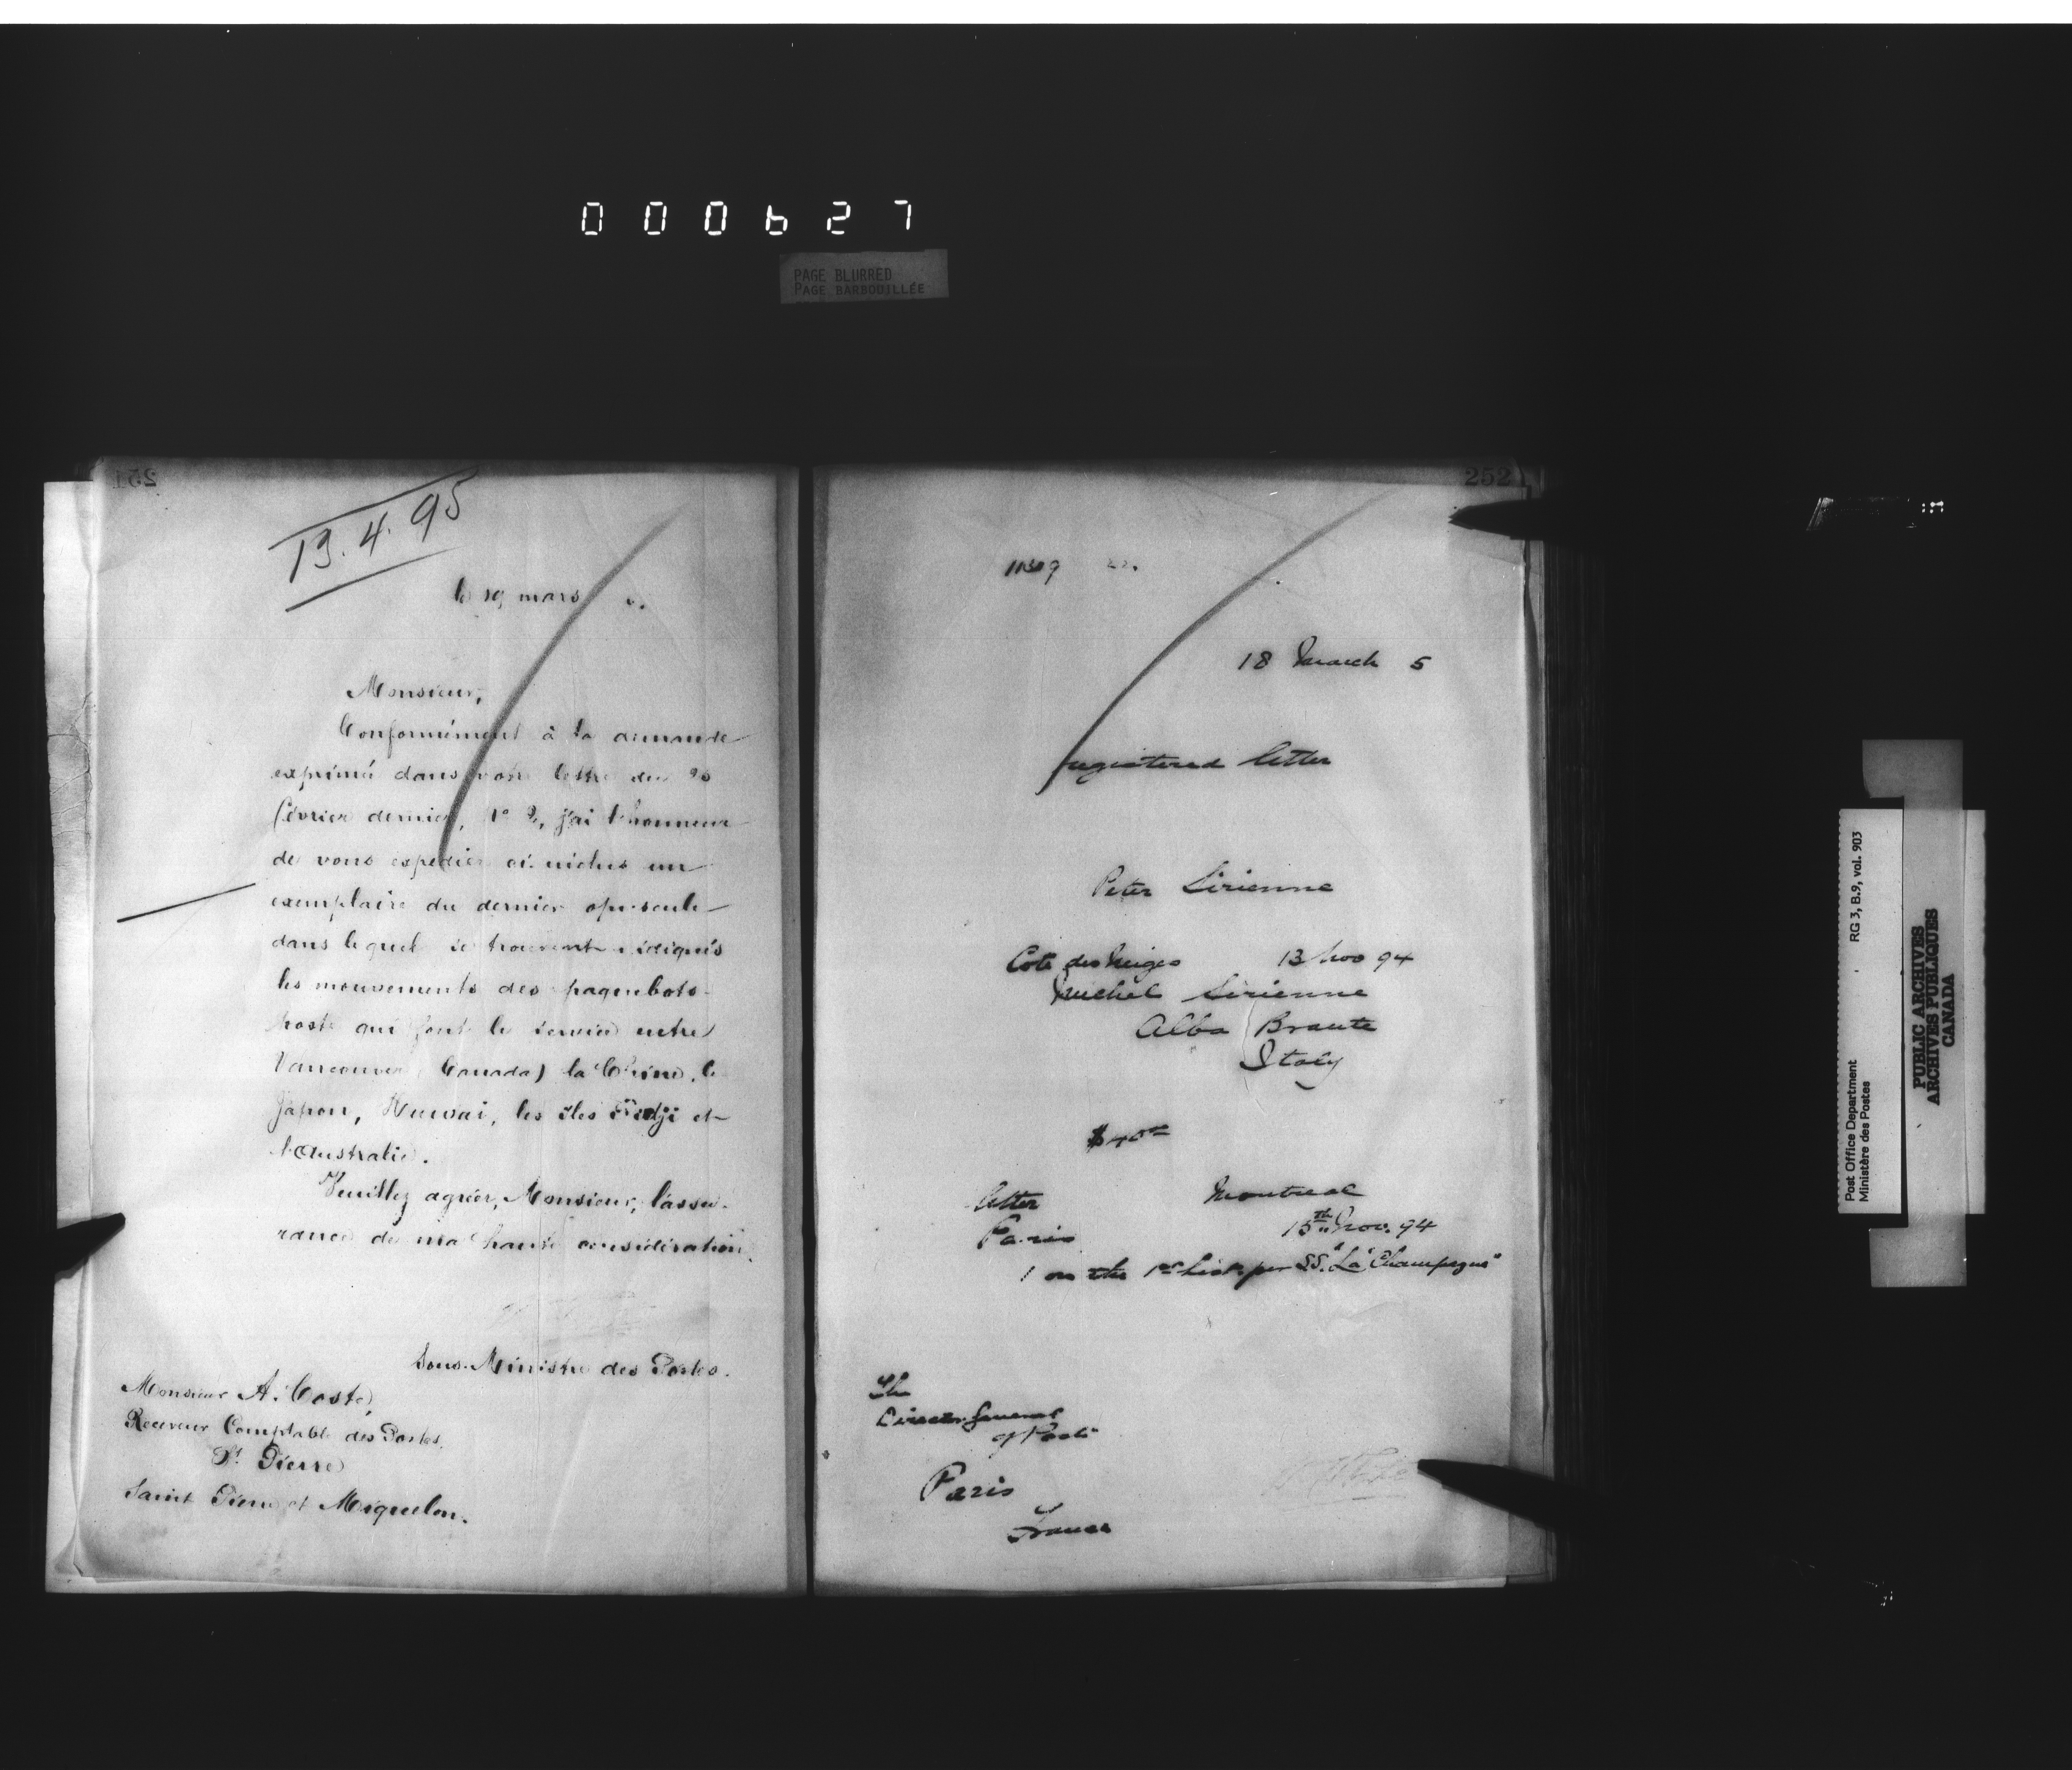 000627
PAGE BLURRED
PAGE BARBOUILLÉE
251
13.4.95
le 19 mars
Monsieur,
Conformément à la demande
exprimé dans votre lettre du 20
février dernier, j'ai l'honneur
de vous expédier ci-inclus un
exemplaire du dernier opuscule
dans lequel se trouvent
les mouvements des paquebots-
poste qui font le service entre
Vancouver (Canada) la Chine, le
Japon, Hawai, les îles Fidji et
l'Australie.
Veuillez agréer, Monsieur, l'assu-
rance de ma haute considération.
Sous-Ministre des Postes.
Monsieur A. Coste,
Receveur Comptable des Postes,
St. Pierre
Saint Pierre et Miquelon.
252
18 March 5
registered letter
Peter Sirienne
Cote des Neiges 13 Nov 94
Michel Sirienne
Alba Braute
Italy
letter Montreal
Paris 15th Nov. 94
1 on the 1st list per SS. "La Champagne"
The
Director General
of Posts
Paris
France
Post Office Department
Ministère des Postes
RG 3, B.9, vol. 903
PUBLIC ARCHIVES
ARCHIVES PUBLIQUES
CANADA